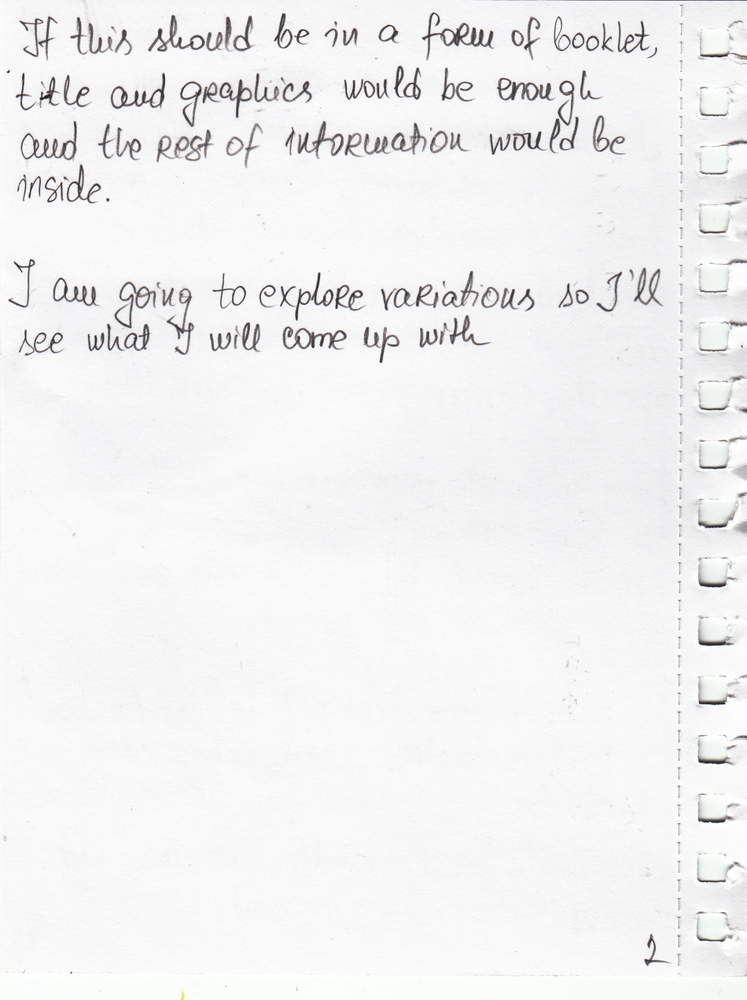 If this should be in a form of booklet,
title and graphics would be enough
and the rest of information would be
inside.
I am going to explore variations so I'll
see what I will come up with
2